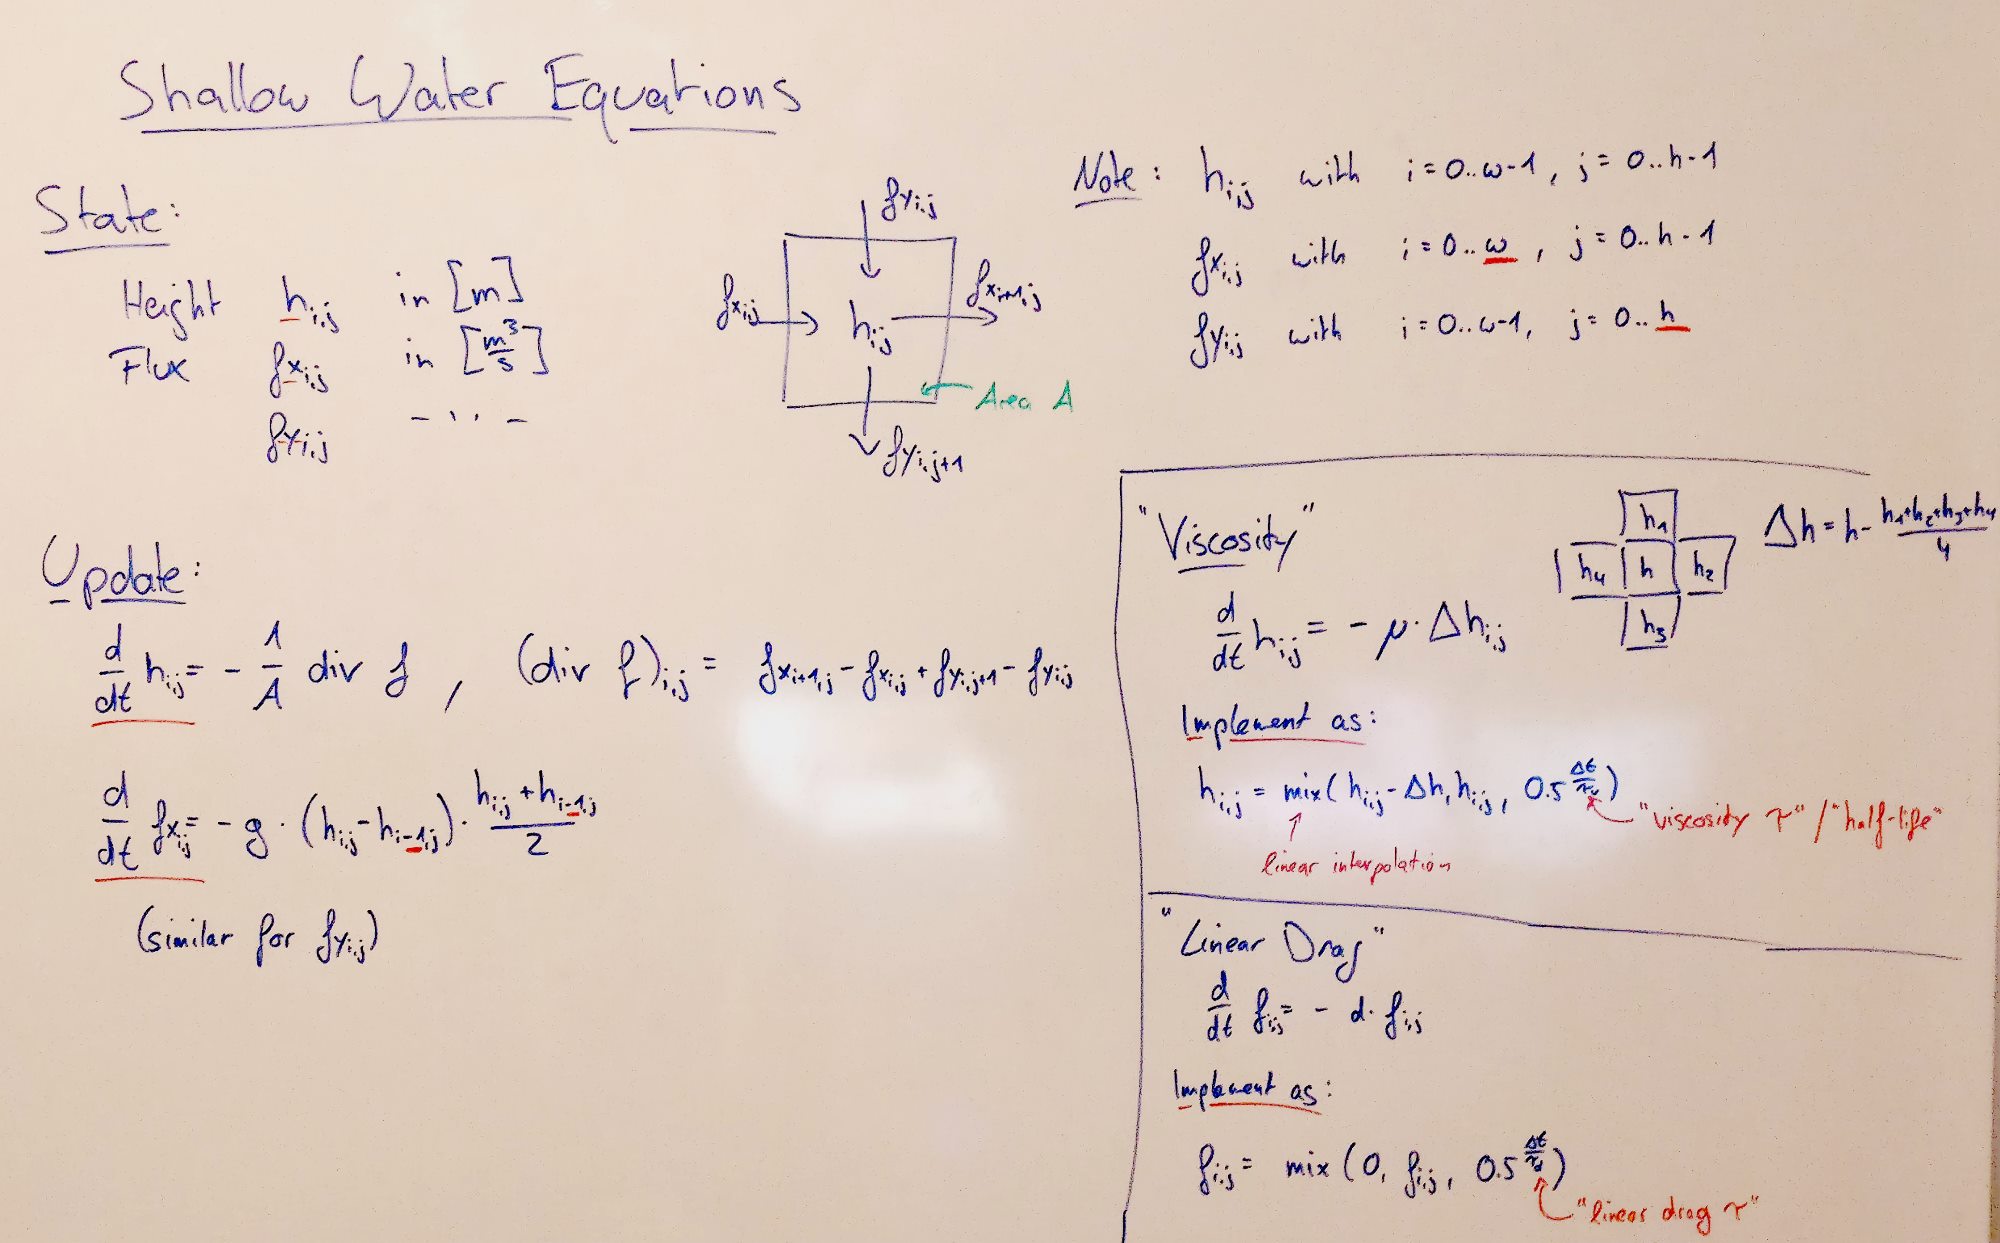 Shallow Water Equations
State:
Height h_{i,j} in [m]
Flux fx_{i,j} in [m³/s]
fy_{i,j} - '' -
fy_{i,j}
fx_{i,j} h_{i,j} fx_{i+1,j}
Area A
fy_{i,j+1}
Note: h_{i,j} with i=0..w-1, j=0..h-1
fx_{i,j} with i=0..w, j=0..h-1
fy_{i,j} with i=0..w-1, j=0..h
Update:
d/dt h_{i,j} = - 1/A div f, (div f)_{i,j} = fx_{i+1,j} - fx_{i,j} + fy_{i,j+1} - fy_{i,j}
d/dt fx_{i,j} = -g · (h_{i,j} - h_{i-1,j}) · (h_{i,j} + h_{i-1,j})/2
(similar for fy_{i,j})
"Viscosity"
h₁
h₄ h h₂
h₃
Δh = h - (h₁+h₂+h₃+h₄)/4
d/dt h_{i,j} = - μ · Δh_{i,j}
Implement as:
h_{i,j} = mix(h_{i,j} - Δh, h_{i,j}, 0.5^{Δt/τ_v})
"viscosity τ" / "half-life"
linear interpolation
"Linear Drag"
d/dt f_{i,j} = - d · f_{i,j}
Implement as:
f_{i,j} = mix(0, f_{i,j}, 0.5^{Δt/τ_d})
"linear drag τ"